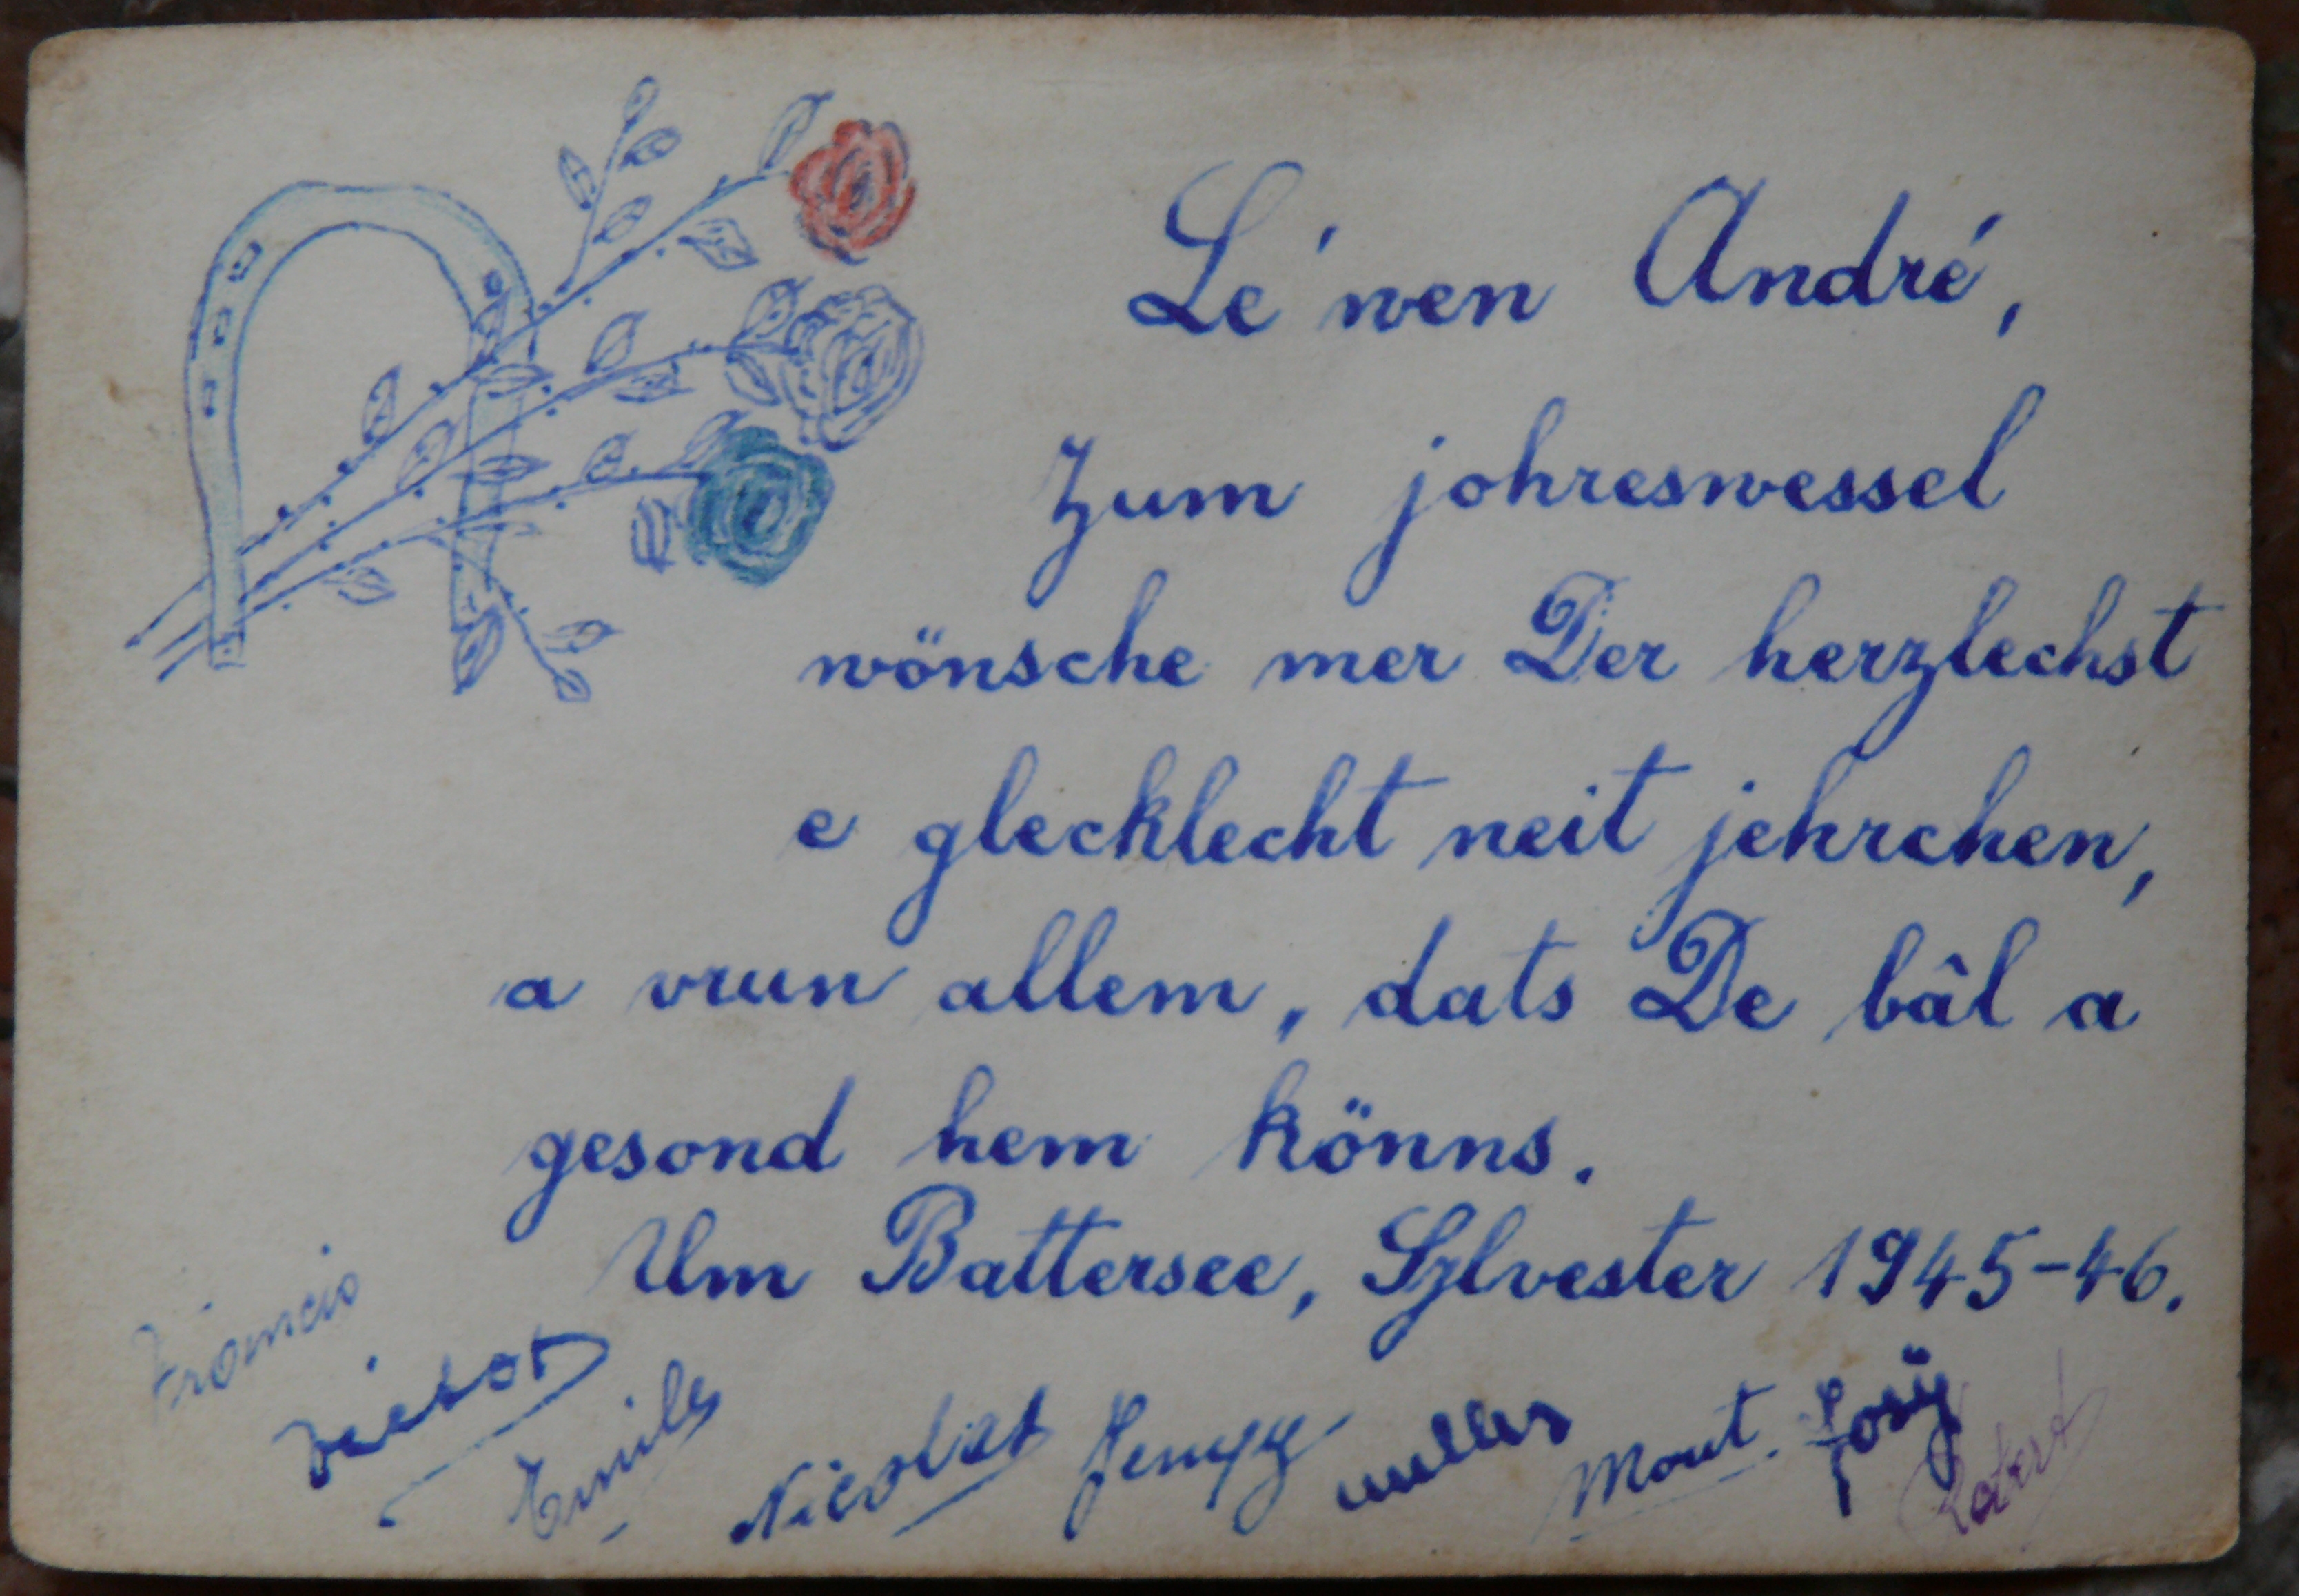 Le'wen André,
Zum johreswessel
wönsche mer Der herzlechst
e glecklecht neit jehrchen,
a vrun allem, dats De bâl a
gesond hem könns.
Um Battersee, Sylvester 1945-46.
Francis
Victor
Emile
Nicolas Jempy
Josÿ
Robert